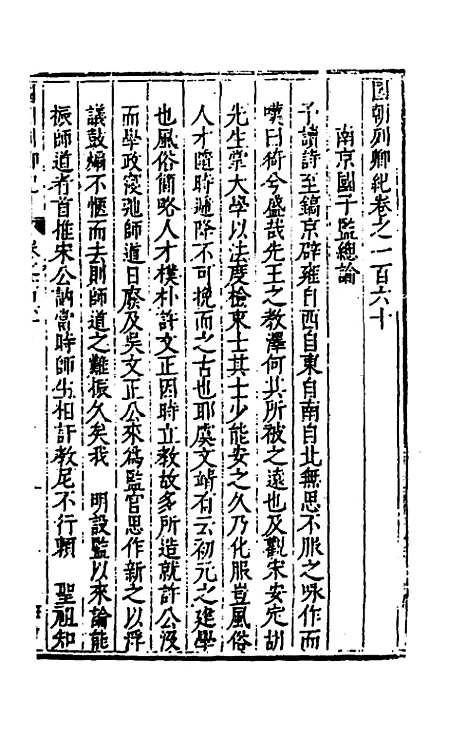 國朝列卿紀卷之一百六十
南京國子監總論
予讀詩至鎬京辟雍自西自東自南自北無思不服之咏作而
嘆曰猗兮盛哉先王之教澤何其所被之遠也及觀宋安定胡
先生掌大學以法度檢束士其士少能安之久乃化服豈風俗
人才隨時遞降不可挽而之古也耶虞文靖有云初元之建學
也風俗簡略人才樸朴許文正因時立教故多所造就許公沒
而學政寖弛師道日廢及吳文正公來為監官思作新之以浮
議鼓煽不愜而去則師道之難振久矣我 明設監以來論能
振師道者首推宋公訥當時師生相訐教尼不行賴 聖祖知